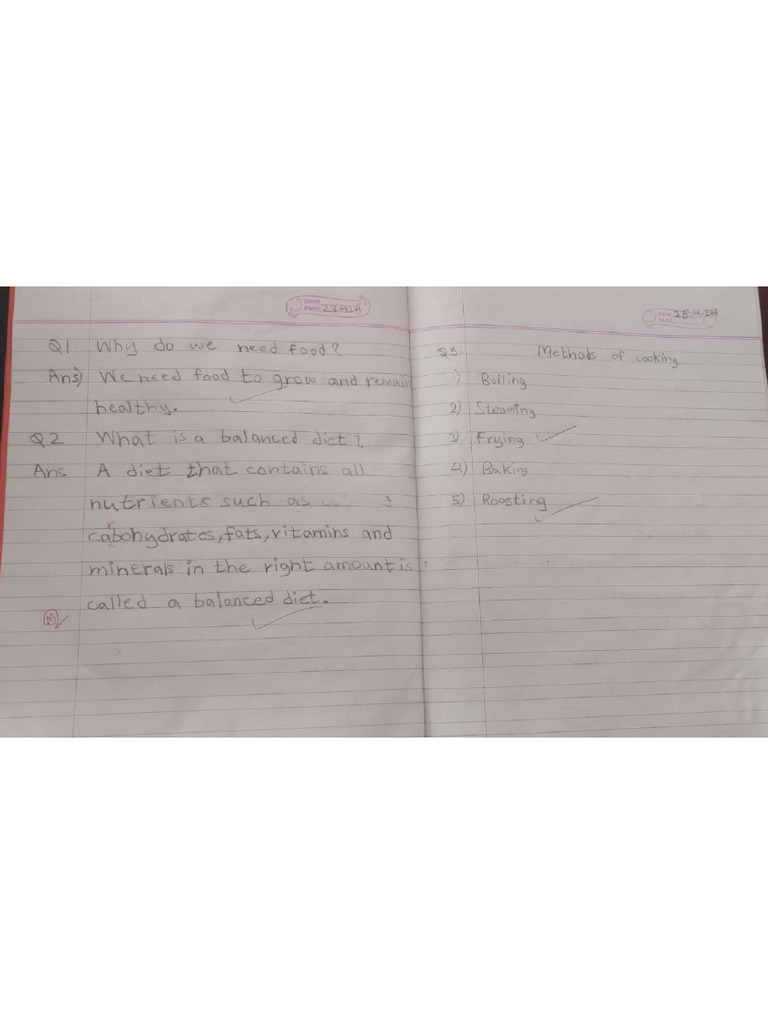 DATE
PAGE 23-4-24
Q1 Why do we need food?
Ans) We need food to grow and remain
healthy.
Q2 What is a balanced diet?
Ans A diet that contains all
nutrients such as
cabohydrates, fats, vitamins and
r
minerals in the right amount is
called a balanced diet.
DATE 25-4-24
PAGE
Q3 Methods of cooking
1) Boiling
2) Steaming
3) Frying
4) Baking
5) Roosting